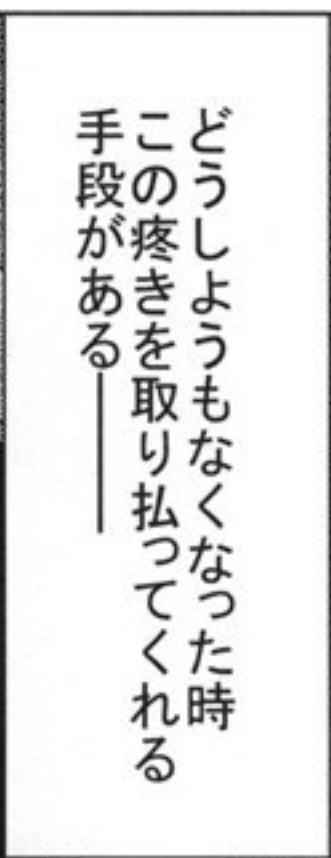 どうしようもなくなった時
この疼きを取り払ってくれる
手段がある――